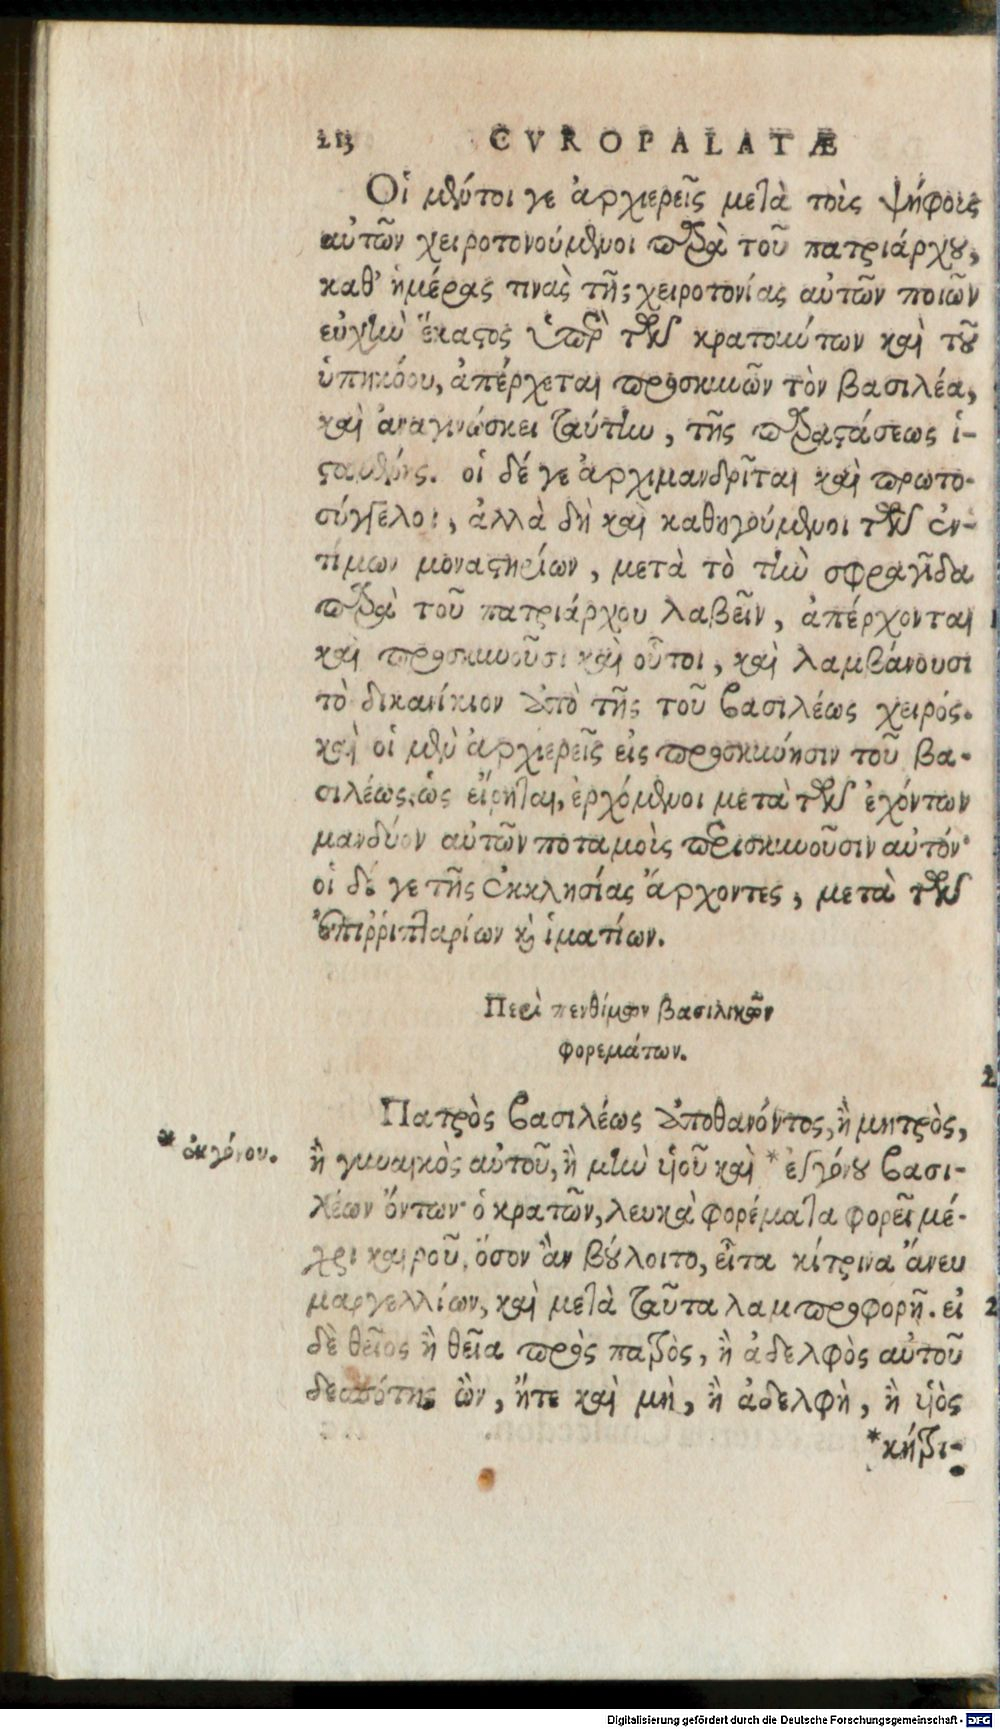 CVROPALATÆ
Οἱ μέντοι γε ἀρχιερεῖς μετὰ τοὺς ψήφους
αὐτῶν χειροτονούμενοι παρὰ τοῦ πατριάρχου,
καθ' ἡμέρας τινὰς τῆς χειροτονίας αὐτῶν ποιῶν
εὐχὴν ἕκαστος ὑπὲρ τῶν κρατούντων καὶ τοῦ
ὑπηκόου, ἀπέρχεται προσκυνῶν τὸν βασιλέα,
καὶ ἀναγινώσκει ταύτην, τῆς παραστάσεως ἱ-
σταμένης. οἱ δέ γε ἀρχιμανδρῖται καὶ πρωτο-
σύγγελοι, ἀλλὰ δὴ καὶ καθηγούμενοι τῶν ἐν-
τίμων μοναστηρίων, μετὰ τὸ τὴν σφραγῖδα
παρὰ τοῦ πατριάρχου λαβεῖν, ἀπέρχονται
καὶ προσκυνοῦσι καὶ οὗτοι, καὶ λαμβάνουσι
τὸ δικανίκιον ἀπὸ τῆς τοῦ βασιλέως χειρός.
καὶ οἱ μὲν ἀρχιερεῖς εἰς προσκύνησιν τοῦ βα-
σιλέως, ὡς εἴρηται, ἐρχόμενοι μετὰ τῶν ἐχόντων
μανδύον αὐτῶν ποταμοὺς προσκυνοῦσιν αὐτόν·
οἱ δέ γε τῆς ἐκκλησίας ἄρχοντες, μετὰ τῶν
ἐπιρριπταρίων καὶ ἱματίων.
Περὶ πενθίμων βασιλικῶν
φορεμάτων.
Πατρὸς βασιλέως ἀποθανόντος, ἢ μητρὸς,
* ἐκγόνου.
ἢ γυναικὸς αὐτοῦ, ἢ μὴν υἱοῦ καὶ * ἐγγόνου βασι-
λέων ὄντων· ὁ κρατῶν, λευκὰ φορέματα φορεῖ μέ-
χρι καιροῦ, ὅσον ἂν βούλοιτο, εἶτα κίτρινα ἄνευ
μαργελλίων, καὶ μετὰ ταῦτα λαμπροφορῇ. εἰ
δὲ θεῖος ἢ θεῖα πρὸς πατρὸς, ἢ ἀδελφὸς αὐτοῦ
δεσπότης ὢν, ἤτε καὶ μὴ, ἢ ἀδελφὴ, ἢ υἱὸς
* κήτρι-
Digitalisierung gefördert durch die Deutsche Forschungsgemeinschaft - DFG